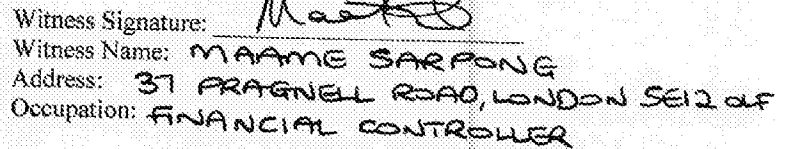 Witness Signature:
Witness Name: MAAME SARPONG
Address: 37 PRAGNELL ROAD, LONDON SE12 0LF
Occupation: FINANCIAL CONTROLLER